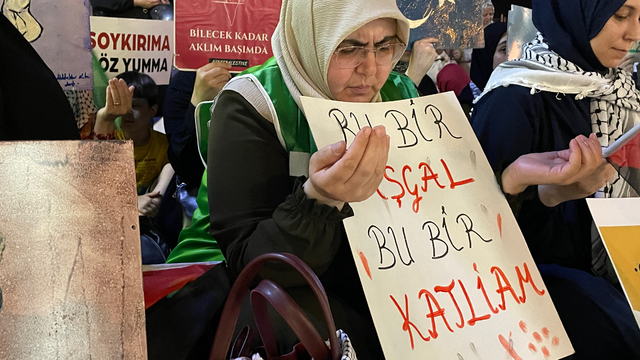 SOYKIRIMA
ÖZ YUMMA
BİLECEK KADAR
AKLIM BAŞIMDA
BU BİR
İŞGAL
BU BİR
KATLİAM